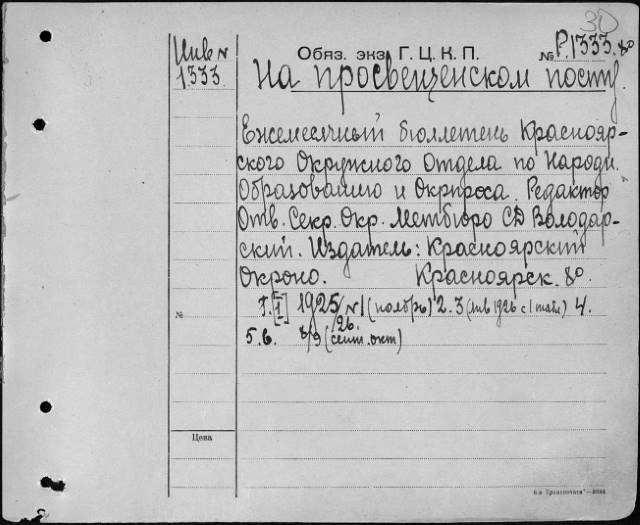 30
Инв №
1333.
Обяз. экз. Г. Ц. К. П.
№ Р.1333. 8º
На просвещенском посту
Ежемесячный бюллетень Краснояр-
ского Окружного Отдела по Народн.
Образованию и Окрпроса. Редактор
Отв. Секр. Окр. Метбюро СД Володар-
ский. Издатель: Красноярский
Окроно. Красноярск. 8º.
Г. [I] 1925/26. №1 (ноябрь) 2. 3 (янв 1926 с 4.
№
5. 6. 8/9 (сент. окт)
Цена